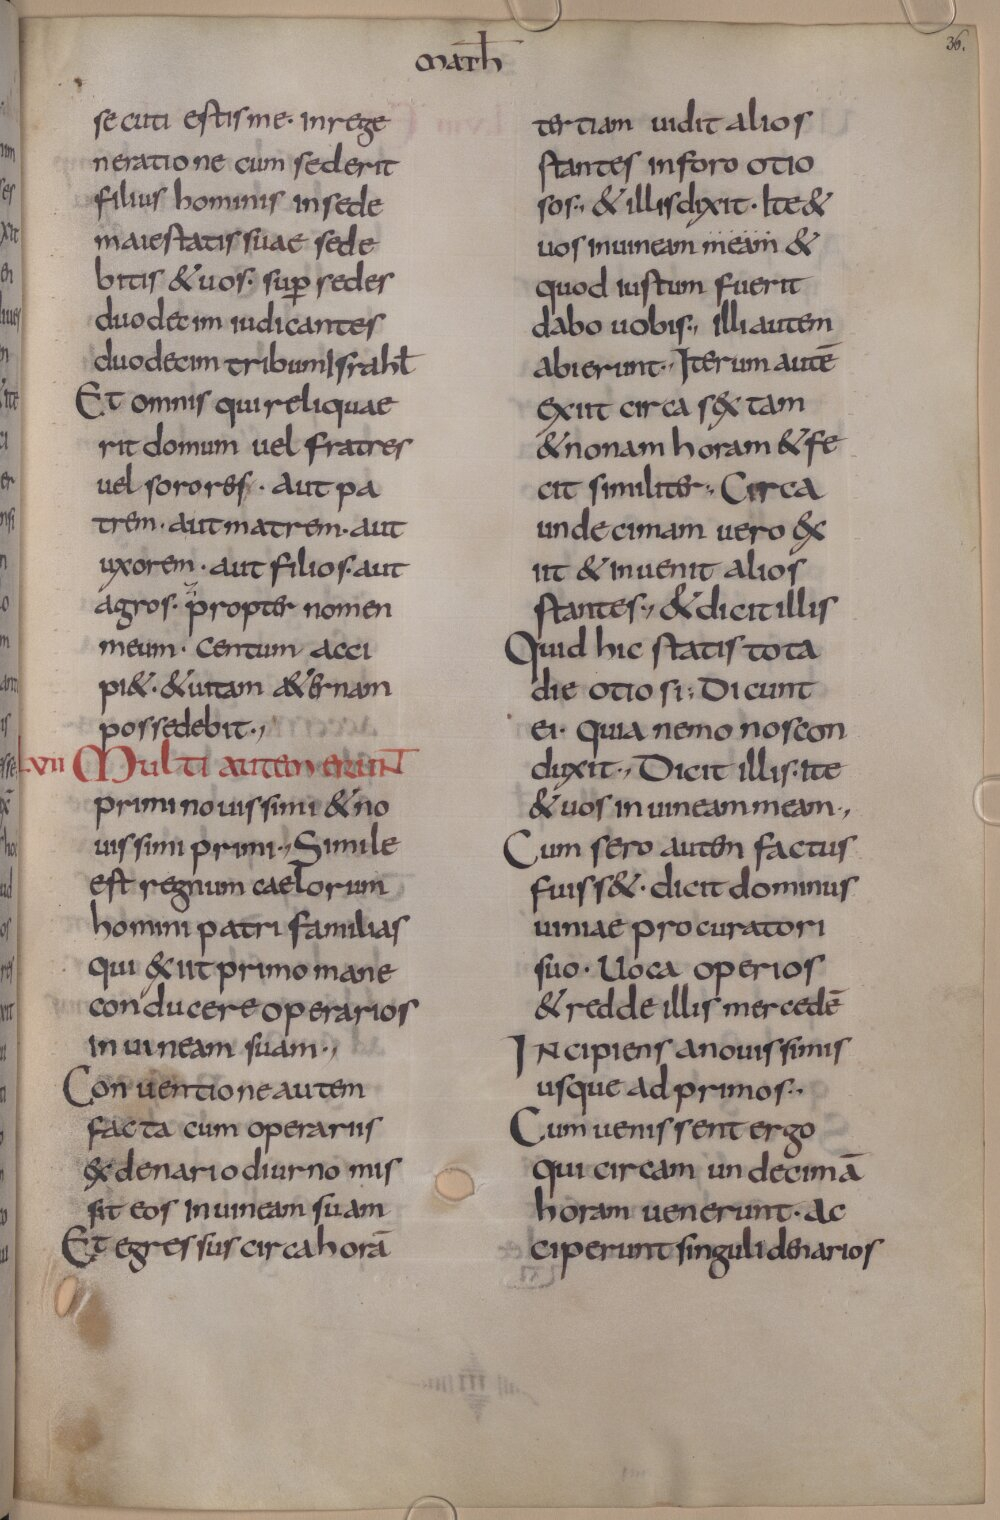 math̄
36.
secuti estis me· in rege
neratione cum sederit
filius hominis in sede
maiestatis suae sede
bitis & uos· suꝑ sedes
duodecim iudicantes
duodecim tribum Israhł
Et omnis qui reliquae
rit domum uel fratres
uel sorores· aut pa
trem· aut matrem· aut
uxorem· aut filios· aut
agros· propter nomen
meum· centum acci
pi&· & uitam aeternam
possedebit·,
Lvii Multi autem erunt
primi nouissimi & no
uissimi primi·, Simile
est regnum caelorum
homini patri familias
qui exiit primo mane
conducere operarios
in uineam suam·,
Conuentione autem
facta cum operariis
ex denario diurno mis
sit eos in uineam suam
Et egressus circa horā
tertiam uidit alios
stantes in foro otio
sos·, & illis dixit· Ite &
uos in uineam meam &
quod iustum fuerit
dabo uobis·, illi autem
abierunt·, Iterum autē
exiit circa sextam
& nonam horam & fe
cit similiter·, Circa
undecimam uero ex
iit & inuenit alios
stantes·, & dicit illis
Quid hic statis tota
die otiosi·, Dicunt
ei· Quia nemo nos con
duxit·, Dicit illis· Ite
& uos in uineam meam·,
Cum sero autem factus
fuiss&· dicit dominus
uiniae procuratori
suo· Uoca operios
& redde illis mercedē
Incipiens a nouissimis
usque ad primos·,
Cum uenissent ergo
qui circam undecimā
horam uenerunt· ac
ciperunt singuli denarios